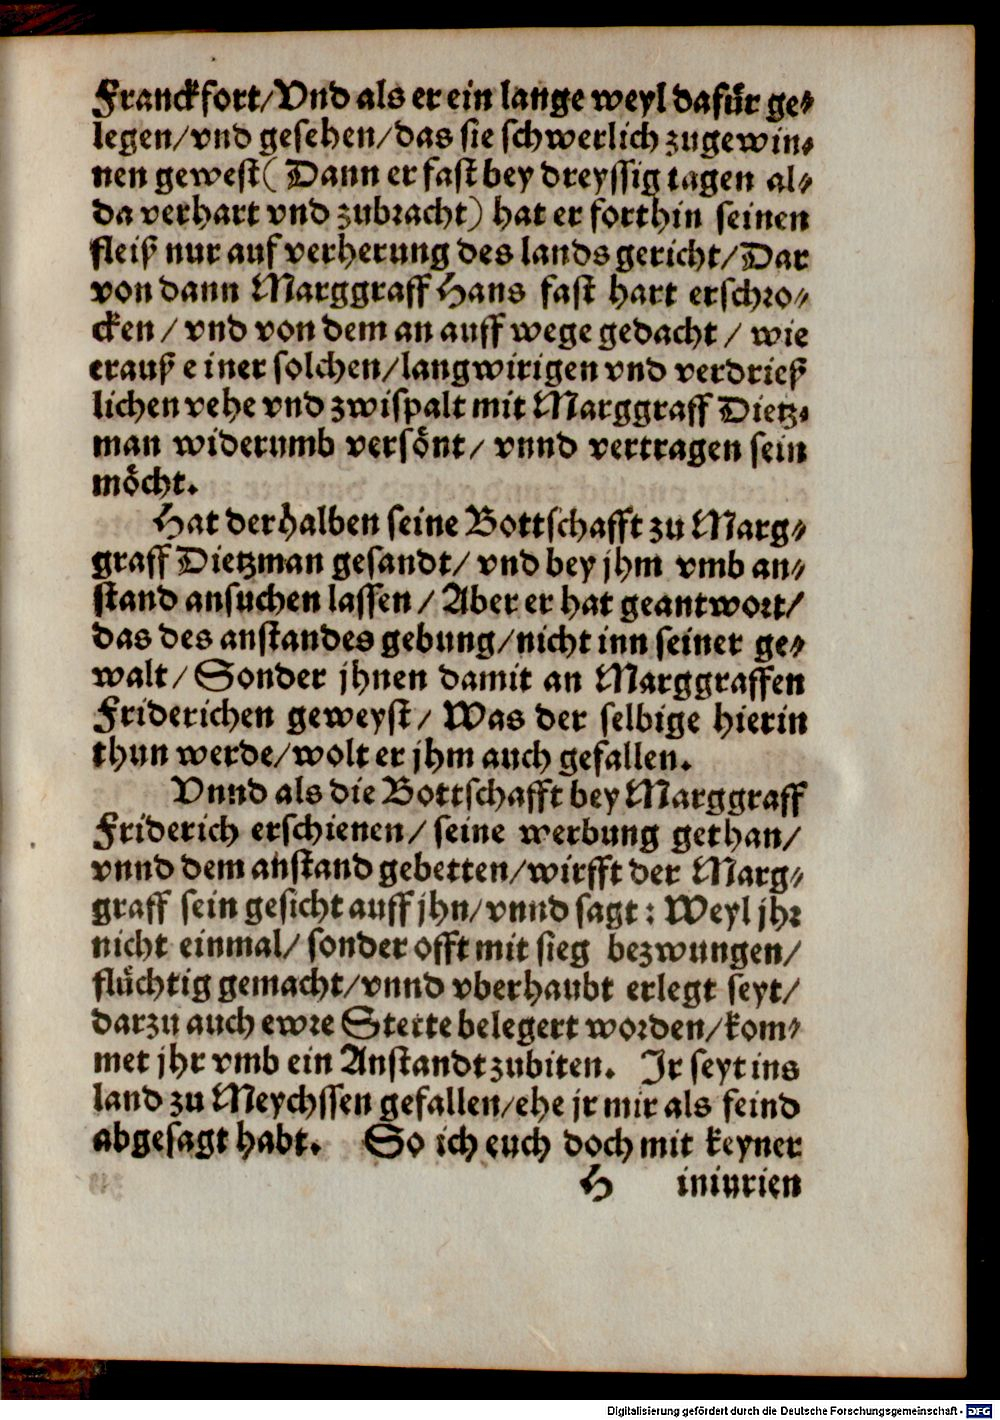 Franckfort/Vnd als er ein lange weyl dafür ge⸗
legen/vnd gesehen/das sie schwerlich zugewin⸗
nen gewest( Dann er fast bey dreyssig tagen al⸗
da verhart vnd zubracht) hat er forthin seinen
fleiß nur auf verherung des lands gericht/Dar
von dann Marggraff Hans fast hart erschro⸗
cken/ vnd von dem an auff wege gedacht/ wie
erauß einer solchen/langwirigen vnd verdrieß
lichen vehe vnd zwispalt mit Marggraff Dietz⸗
man widerumb versönt/ vnnd vertragen sein
möcht.
Hat derhalben seine Bottschafft zu Marg⸗
graff Dietzman gesandt/ vnd bey jhm vmb an⸗
stand ansuchen lassen/ Aber er hat geantwort/
das des anstandes gebung/nicht inn seiner ge⸗
walt/ Sonder jhnen damit an Marggraffen
Friderichen geweyst/ Was der selbige hierin
thun werde/wolt er jhm auch gefallen.
Vnnd als die Bottschafft bey Marggraff
Friderich erschienen/ seine werbung gethan/
vnnd dem anstand gebetten/wirfft der Marg⸗
graff sein gesicht auff jhn/vnnd sagt: Weyl jhr
nicht einmal/ sonder offt mit sieg bezwungen/
flüchtig gemacht/vnnd vberhaubt erlegt seyt/
darzu auch ewre Stette belegert worden/kom⸗
met jhr vmb ein Anstandt zubiten. Ir seyt ins
land zu Meychssen gefallen/ehe jr mir als feind
abgesagt habt. So ich euch doch mit keyner
H iniurien
Digitalisierung gefördert durch die Deutsche Forschungsgemeinschaft - DFG